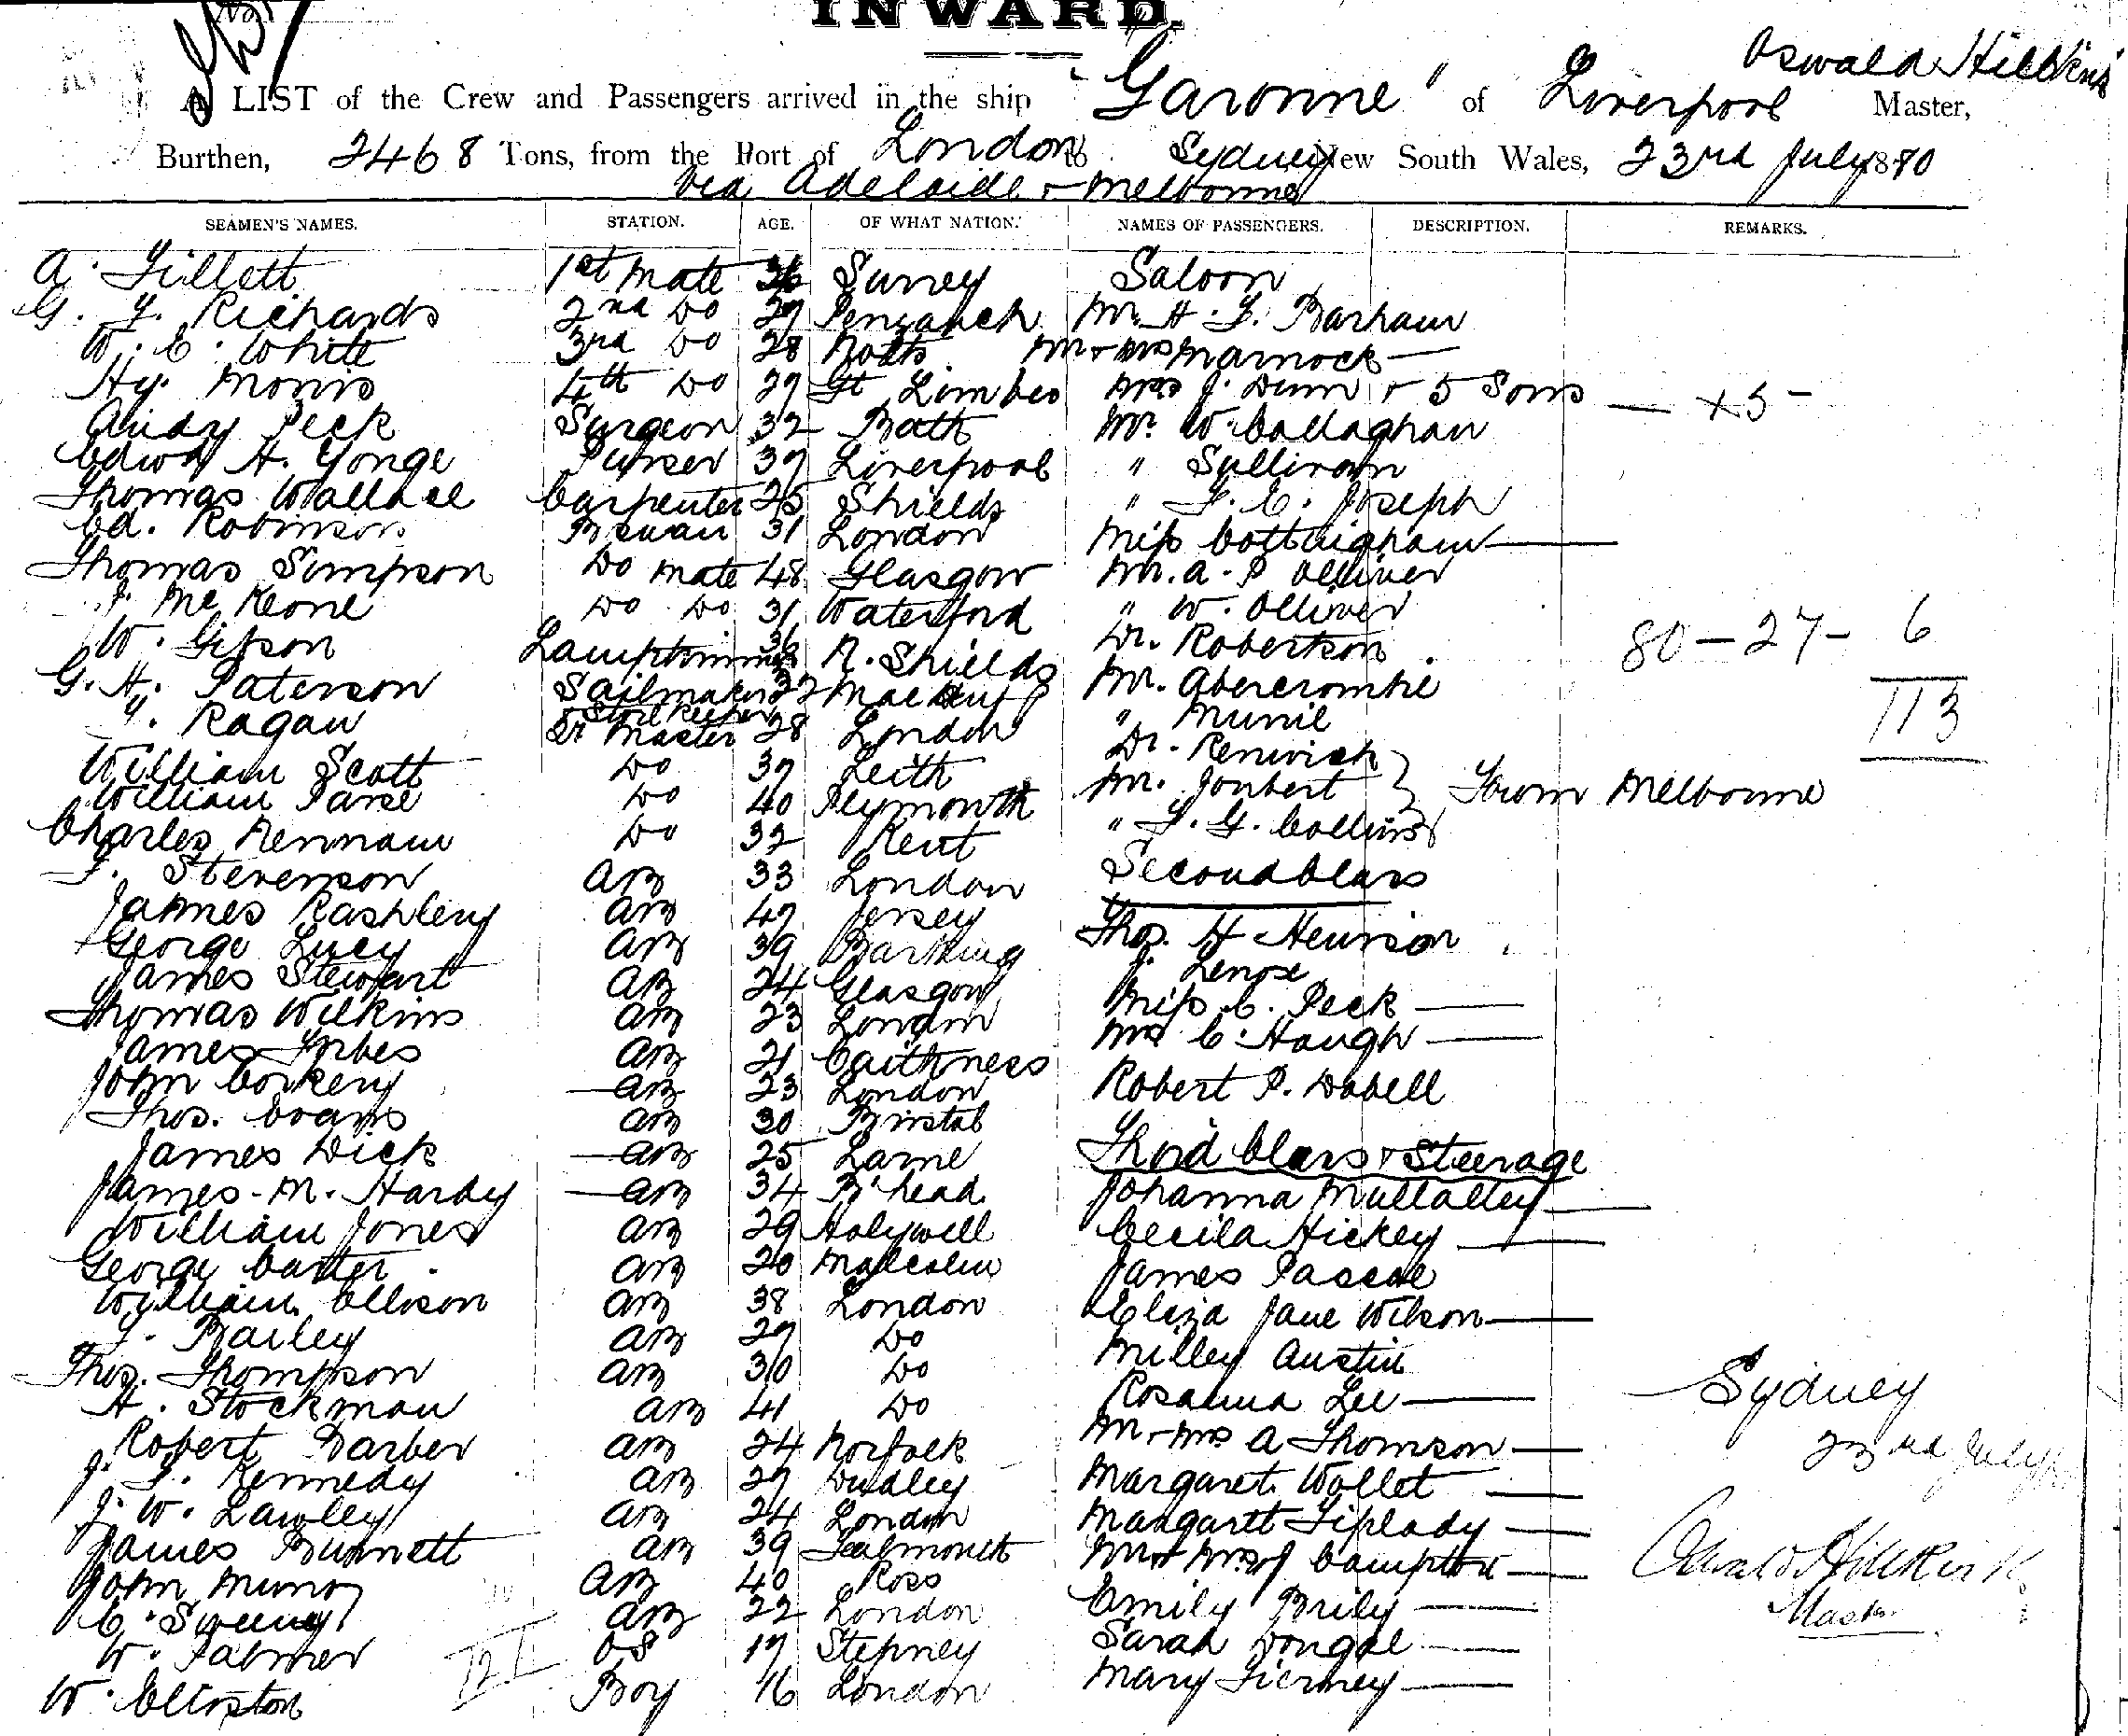 INWARD.
Oswald Hillkirk
A LIST of the Crew and Passengers arrived in the ship "Garonne" of Liverpool Master,
Burthen, 2468 Tons, from the Port of London to Sydney New South Wales, 23rd July 1880
Via Adelaide & Melbourne
SEAMEN'S NAMES. STATION. AGE. OF WHAT NATION. NAMES OF PASSENGERS. DESCRIPTION. REMARKS.
A. Gillett 1st Mate 36 Surrey Saloon
G. F. Richards 2nd Do 29 Penzance Mr. H. F. Barham
W. C. White 3rd Do 28 Notts Mr & Mrs Marnock —
Hy. Morris 4th Do 29 Gt Mrs J. Dunn & 5 Sons — x5 -
Andy Peck Surgeon 32 Bath Mr. W. Callaghan
Edwd A. Yonge Purser 39 Liverpool " Sullivan
Thomas Wallace Carpenter 25 Shields " F. C. Joseph
Ed. Robinson Bswain 31 London Miss Cottingham —
Thomas Simpson Do Mate 48 Glasgow Mr. A. P Olliver
McKeone Do Do 31 Waterford " W. Olliver
W. Gipson Lamptrimmer 36 N. Shields Dr. Robertson 80 — 27 — 6
G. H. Paterson Sailmaker 22 Macduff Mr. Abercrombie 113
& Storekeeper
Ragan Qr Master 28 London "
Dr. Renwick
William Scott Do 39 Leith Mr. Joubert } From Melbourne
William Do 40 Plymouth " F. G. Collins
Charles Kennam Do 32 Kent
Stevenson AB 33 London Second Class
James Rashleig AB 49 Jersey
George Lucy AB 39 Barking Thos. H
James Stewart AB 24 Glasgow J. Lenox
Thomas Wilkins AB 23 London Miss C. Peck —
James Forbes AB 21 Caithness Mrs C. Haugh —
John Corkery AB 23 London Robert P. Dabell
Thos. Evans AB 30 Bristol
James Dick AB 25 Larne Third Class & Steerage
James M. Hardy AB 34 B'head Johanna Mullalley —
William Jones AB 29 Holywell Cecila Hickey —
George Carter AB 20 Malcolm James Pascoe
William Ellison AB 38 London Eliza Jane Wilson —
Bailey AB 29 Do Milley Austin
Thos. Thompson AB 30 Do Rosanna Lee —
H. Stockman AB 41 Do Mr & Mrs A Thomson —
Robert Barber AB 24 Norfolk Margaret Wollet —
J. F. Kennedy AB 29 Dudley Margarett Tiplady —
J. W. Lawley AB 24 London Mr & Mrs J Compton —
James Burnett AB 39 Falmouth Emily Brily —
John Munro AB 40 Ross Sarah Dougal —
C. Sweeny AB 22 London Mary Tierney —
W. Palmer OS 19 Stepney
W. Elliston Boy 16 London
121
Sydney
23rd July
Oswald Hillkirk
Master